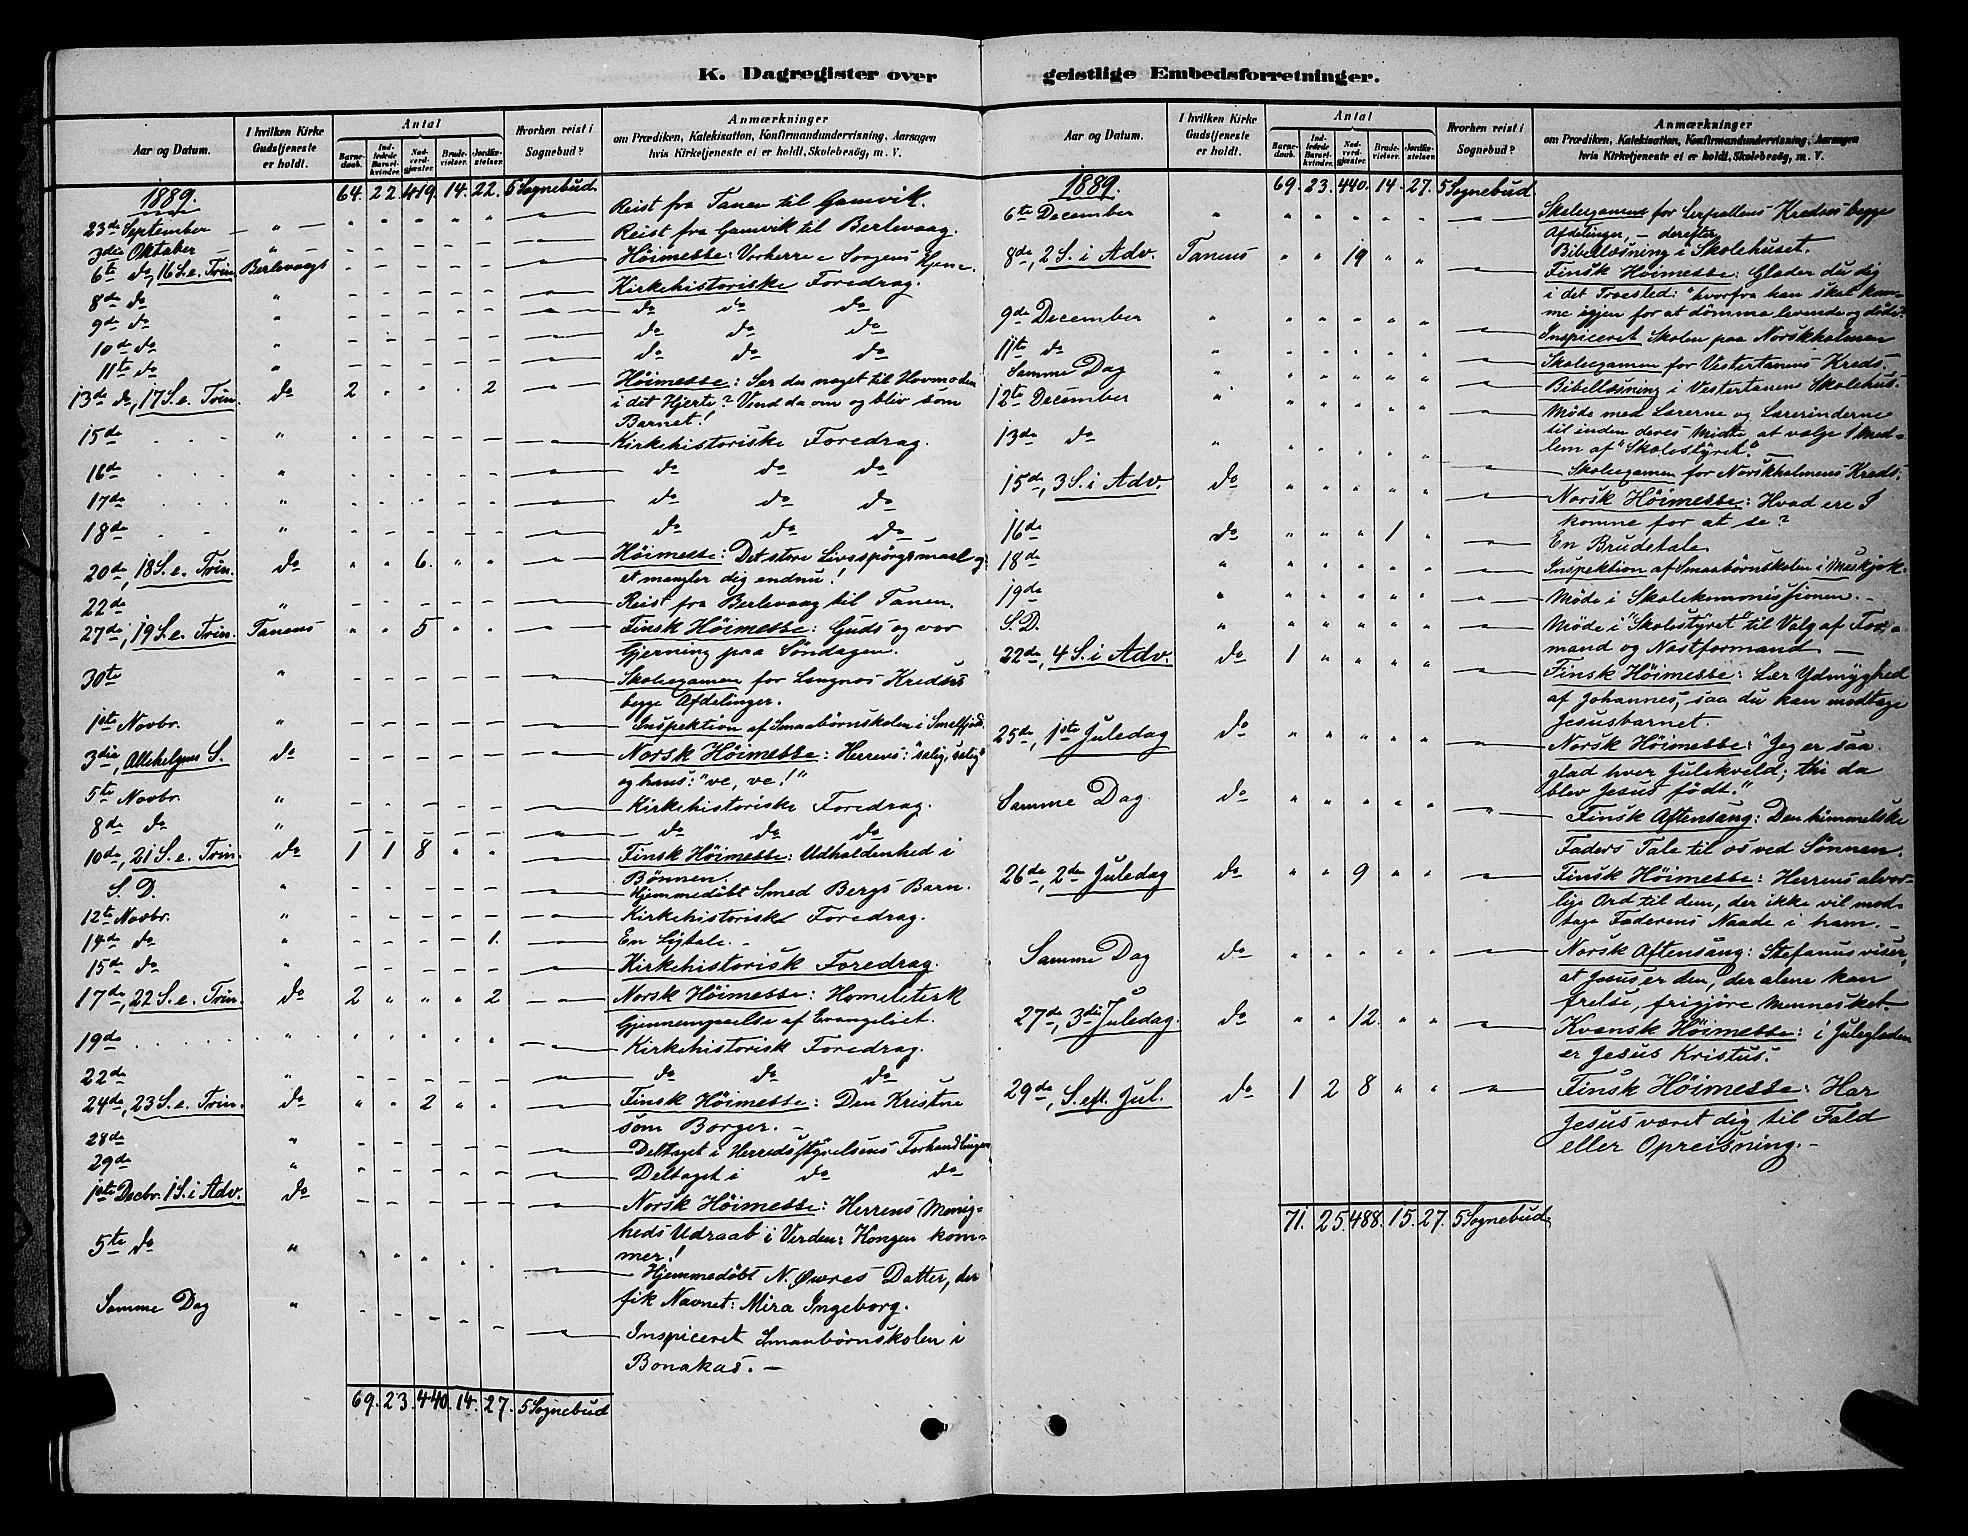 K. Dagregister over geistlige Embedsforretninger.
Aar og Datum. I hvilken Kirke Gudstjeneste er holdt. Antal Barnedaab. Indledede Barselkvinder. Nadverdgjæster. Brudevielser. Jordfæstelser. Hvorhen reist i Sognebud? Anmærkninger om Prædiken, Katekisation, Konfirmandundervisning, Aarsagen hvis Kirketjeneste ei er holdt, Skolebesøg, m. V.
1889. 64. 22. 419. 14. 22. 5 Sognebud.
23de September — " — " " " " " Reist fra Tanen til Gamvik.
3die Oktober — " — Reist fra Gamvik til Berlevaag.
6te do, 16 S. e. Trin. Berlevaags Höimesse: Vorherre i Sorgens Hjem.
8de do " Kirkehistoriske Foredrag.
9de do " do do do
10de do " do do do
11te do " do do do
13de do, 17 S. e. Trin. do 2 " " " 2 Höimesse: Ser du noget til Hovmoden
i det Hjerte? Vend da om og bliv som
Barnet!
15de " Kirkehistoriske Foredrag.
16de " do do do
17de " do do do
18de " do do do
20de, 18 S. e. Trin. do " " 6. " " Höimesse: Det store Livsspörgsmaal og
et mangler dig endnu!
22de " Reist fra Berlevaag til Tanen.
27de, 19 S. e. Trin. Tanens " " 5 " " Finsk Höimesse: Guds og vor
Gjerning paa Söndagen.
30te " Skoleexamen for Langnes Kredses
begge Afdelinger.
1ste Novbr. " Inspektion af Smaabörnskolen i Smalfjord.
3die, Allehelgens S. do Norsk Höimesse: Herrens: "salig, salig"
og hans: "ve, ve!"
5te Novbr. " Kirkehistoriske Foredrag.
8de do " do do do
10de, 21 S. e. Trin. do 1 1 8 " " Finsk Höimesse: Udholdenhed i
Bönnen.
S. D. " Hjemmedöbt Smed Bergs Barn.
12te Novbr. " Kirkehistorisk Foredrag.
14de do " 1. En Ligtale. —
15de do " Kirkehistorisk Foredrag.
17de, 22 S. e. Trin. do 2 " " " 2 Norsk Höimesse: Homeletisk
Gjennemgaaelse af Evangeliet.
19de " Kirkehistorisk Foredrag.
22de " do do do
24de, 23 S. e. Trin. do " " 2 " " Finsk Höimesse: Den Kristne
som Borger. —
28de " Deltaget i Herredsstyrelsens Forhandlinger.
29de " Deltaget i do do
1ste Decbr. 1 S. i Adv. do Norsk Höimesse: Herrens Menig-
heds Udraab i Verden: Kongen kom-
mer!
5te do " Hjemmedöbt N. Øwres Datter, der
fik Navnet: Mira Ingeborg.
Samme Dag " Inspiceret Smaabörnskolen i
Bonakas. —
69. 23. 440. 14. 27. 5 Sognebud
Aar og Datum. I hvilken Kirke Gudstjeneste er holdt. Antal Barnedaab. Indledede Barselkvinder. Nadverdgjæster. Brudevielser. Jordfæstelser. Hvorhen reist i Sognebud? Anmærkninger om Prædiken, Katekisation, Konfirmandundervisning, Aarsagen hvis Kirketjeneste ei er holdt, Skolebesøg, m. V.
1889. 69. 23. 440. 14. 27. 5 Sognebud
6te December " Skoleexamen for Kredses begge
Afdelinger, — derefter
Bibellæsning i Skolehuset.
8de, 2 S. i Adv. Tanens " " 19 " " Finsk Höimesse: Glæder du dig
i det Troesled: "hvorfra han skal kom-
me igjen for at dömme levende og döde."
9de December " Inspiceret Skolen paa Norskholmen
11te do " Skoleexamen for Vestertanens Kreds.
Samme Dag " Bibellæsning i Vestertanens Skolehus.
12te December " Möde med Lærerne og Lærerinderne
til inden deres Midte at vælge 1 Med-
lem af "Skolestyret."
13de do " Skoleexamen for Norskholmens Kreds.
15de, 3 S. i Adv. do Norsk Höimesse: Hvad ere I
komne for at se?
16de do " " " 1 " En Brudetale
18de " Inspektion af Smaabörnskolen i Maskjok.
19de " Möde i Skolekommissionen. —
S. D. " Möde i "Skolestyret" til Valg af For-
mand og Næstformand —
22de, 4 S. i Adv. do 1 " " " " Finsk Höimesse: Lær Ydmyghed
af Johannes, saa du kan modtage
Jesusbarnet.
25de, 1ste Juledag do Norsk Höimesse: "Jeg er saa
glad hver Julekveld; thi da
blev Jesus födt."
Samme Dag. do Finsk Aftensang: Den himmelske
Faders Tale til os ved Sönnen.
26de, 2den Juledag do " " 9 " " Finsk Höimesse: Herrens alvor-
lige Ord til dem, der ikke vil mod-
tage Faderens Naade i ham. —
Samme Dag do Norsk Aftensang: Stefanus viser,
at Jesus er den, der alene kan
frelse, frigjöre Mennesket.
27de, 3die Juledag. do " " 12. " " Kvænsk Höimesse: i Juleglæden
er Jesus Kristus.
29de, S. eft. Jul. do 1 2 8 " " Finsk Höimesse: Har
Jesus været dig til Fald
eller Opreisning. —
71. 25. 488. 15. 27. 5 Sognebud.